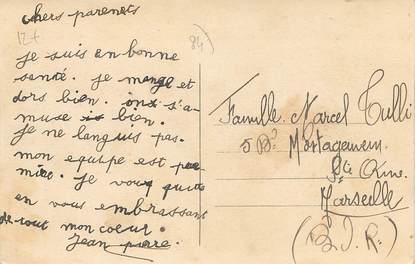 chers parenets
12+
84
je suis en bonne
santé. je mange et
dors bien. onx s'a-
muse is bien.
je ne languis pas.
mon equipe est pre
mière. je vous quitte
en vous embrassant
de tout mon coeur.
Jean pierre.
Famille Marcel Tulli
5 Bd
Ste Anne
Marseille
(B. d. R.)